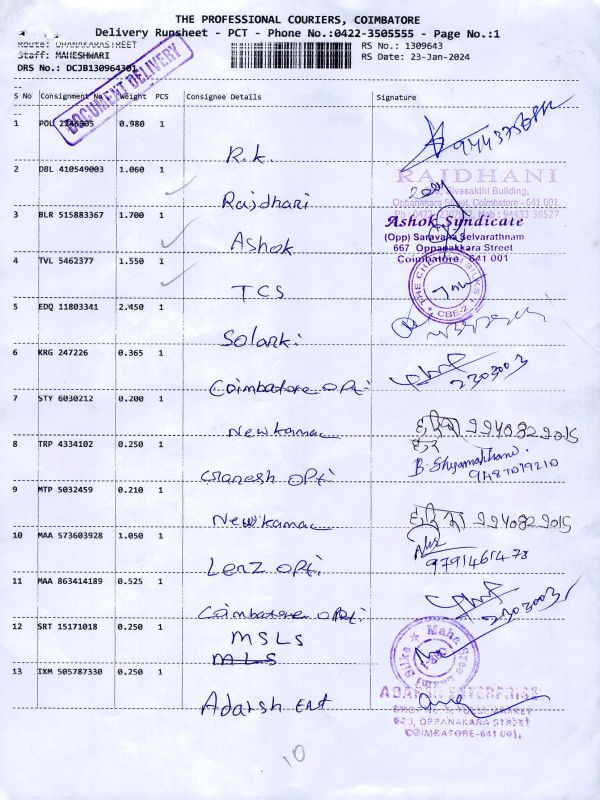 THE PROFESSIONAL COURIERS, COIMBATORE
Delivery Runsheet - PCT - Phone No.:0422-3505555 - Page No.:1
Route: OPPANAKARASTREET
RS No.: 1309643
Staff: MAHESHWARI
RS Date: 23-Jan-2024
DRS No.: DCJB130964301
DOCUMENT DELIVERY
S No Consignment No Weight PCS Consignee Details Signature
1 POL 2246905 0.980 1 R.K.
2 DBL 410549003 1.060 1 Rajdhani
RAJDHANI
Sivasakthi Building,
Oppanakara Street, Coimbatore - 641 001.
3 BLR 515883367 1.700 1 Ashok
Ashok Syndicate
(Opp) Saravana Selvarathnam
667 Oppanakkara Street
Coimbatore, 641 001
4 TVL 5462377 1.550 1 TCS
CBE-2
5 EDQ 11803341 2.450 1 Solanki
6 KRG 247226 0.365 1 Coimbatore opti
2303003
7 STY 6030212 0.200 1 New kamac
9940829015
8 TRP 4334102 0.250 1 Ganesh opti
9487079210
9 MTP 5032459 0.210 1 New kamac
9940829015
10 MAA 573603928 1.050 1 Lenz opti
9791461473
11 MAA 863414189 0.525 1 Coimbatore opti
2303003
12 SRT 15171018 0.250 1 MSLS
MLS
13 IXM 505787330 0.250 1 Adarsh Ent
ENTERPRISE
OPPANAKARA STREET
COIMBATORE-641 001.
10